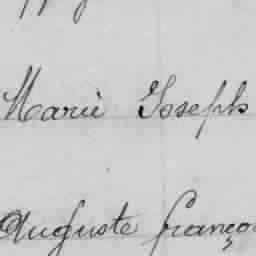 Marie Joseph
Auguste franço